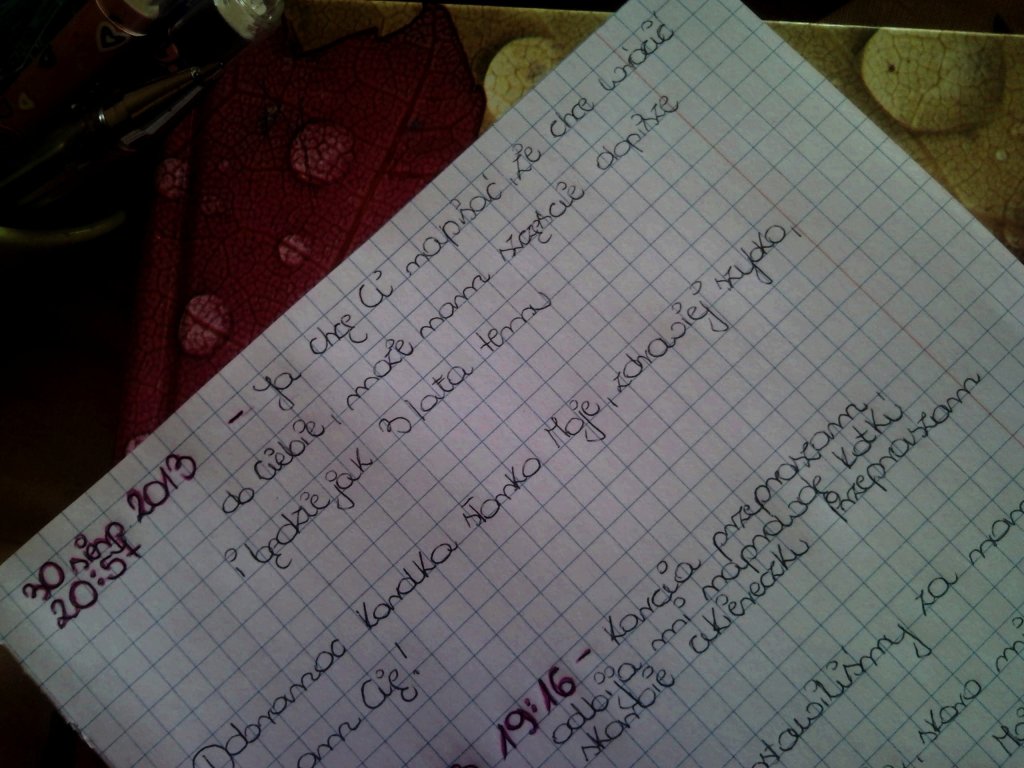 30 sierp 2013
20:57
- Ja chcę Ci napisać, że chce wrócić
do Ciebie, może nam szczęście dopisze
i będzie jak 3 lata temu
Dobranoc Karolka słonko Moje, zdrowiej szybko,
am Cię!
19:16 - Karcia przepraszam,
odbija mi naprawdę kotki,
skarbie cukiereczku przepraszam
stawiliśmy za
, skoro